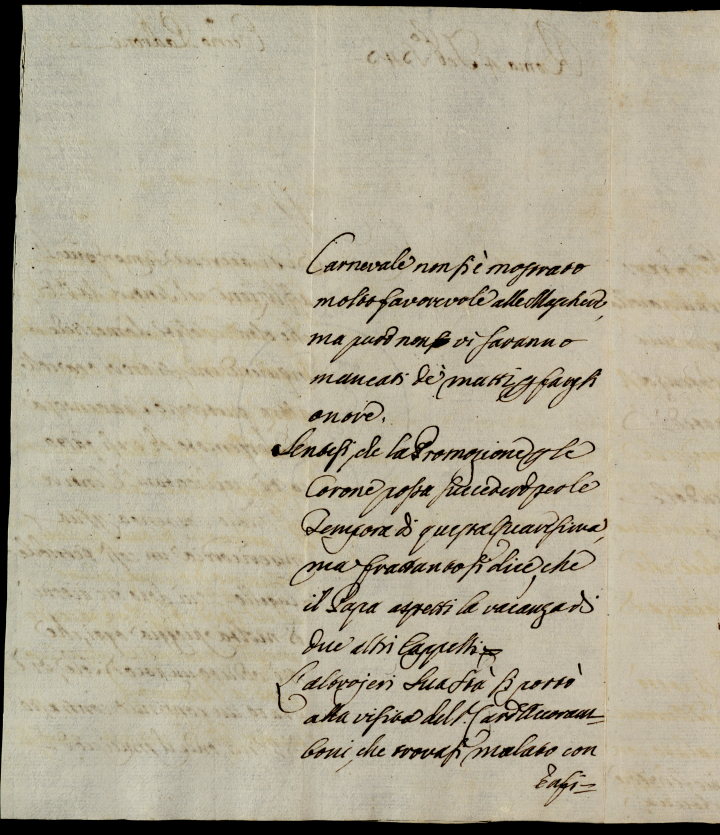 Carnevale non si è mostrato
molto favorevole alle Maschere,
ma però non vi saranno
mancati de' matti p fargli
onore.
Sentesi, che la Promozione p le
Corone possa succedere per le
Tempora di questa Quaresima,
ma frattanto si dice, che
il Papa aspetti la vacanza di
due altri Cappelli.
L'altrojeri Sua Stà si portò
alla visita del S. Card. Accoram=
boni, che trovasi malato con